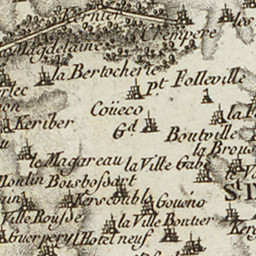 Kernier
los
Magdelaine
Crempere
la Bertocherie
rlec
pt Folleville
non
Coüeco
la
Keriber
Gd
Boutville
la Brou
le Magareau
la Ville Gabe
Moulin
Boisbossart
St
Kerscouble
Goueno
Ville Rousse
la Ville Bontier
Guerpery
l'Hotel neuf
Ker